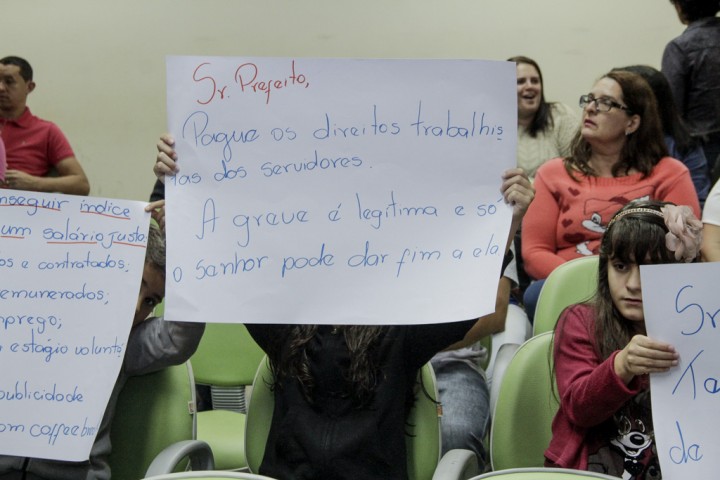 Sr. Prefeito,
Pague os direitos trabalhis
tas dos servidores.
A greve é legítima e só
o senhor pode dar fim a ela
nseguir índice
um salário justo
os e contratados;
emunerados;
mprego;
estágio volunt
publicidade
om coffee b
Sr
Ta
de